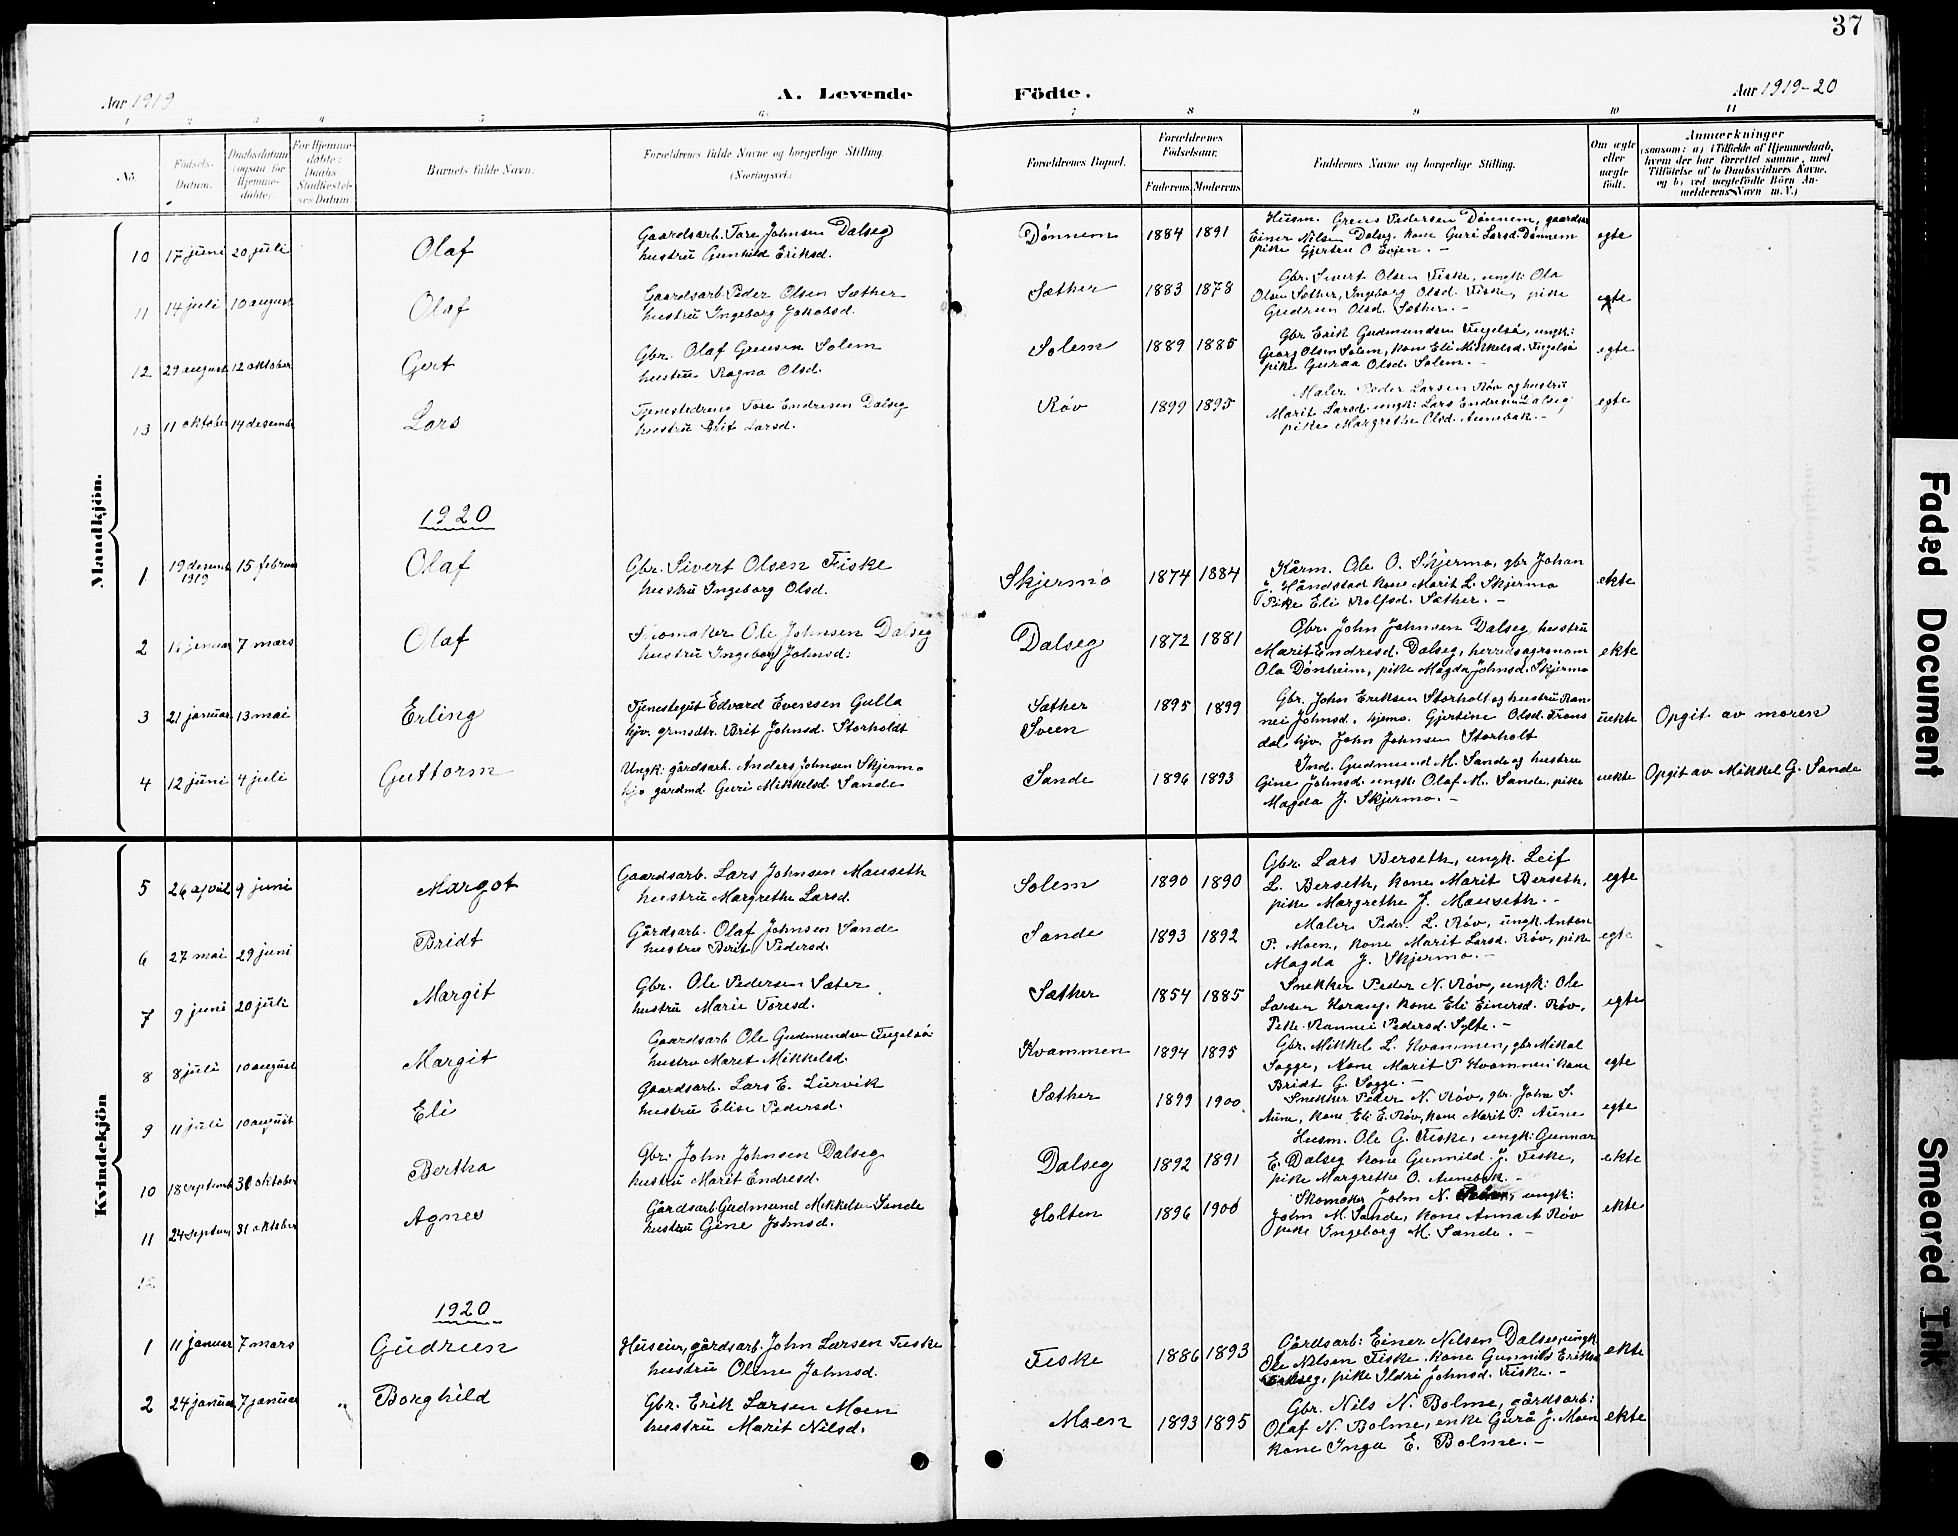 37
Aar 1919
A. Levende
Födte.
Aar 1919-20
No.
Födsels-
Datum.
Daabsdatum
(ogsaa for
Hjemme-
døbte).
For Hjemme-
døbte:
Daabs-
Stadfæstel-
ses Datum
Barnets fulde Navn.
Forældrenes fulde Navne og borgerlige Stilling.
(Næringsvei)
Forældrenes Bopæl.
Forældrenes
Födselsaar.
Faderens. Moderens.
Faddernes Navne og borgerlige Stilling.
Om ægte
eller
uægte
født.
Anmærkninger
(saasom: a) i Tilfælde af Hjemmedaab,
hvem der har forrettet samme, med
Tilföielse af to Daabsvidners Navne,
og b) ved uægtefödte Börn An-
melderens Navn m. V.)
Mandkjön.
10 17 juni 20 juli Olaf
Gaardsarb. Tore Johnsen Dalseg
hustru Gunhild Eriksd.
Dønnem 1884 1891
Husm. Grens Pedersen Dønnem, gaardsar
Einer Nilsen Dalseg. kone Guri Larsd. Dønnem
pike Gjertine O Evjen. -
egte
11 14 juli 10 august Olaf
Gaardsarb. Peder Olsen Sæther
hustru Ingeborg Jakobsd.
Sæther 1883 1878
Gbr. Sivert Olsen Fiske, ungk: Ola
Olsen Sæther, Ingeborg Olsd. Fiske, pike
Gudrun Olsd. Sæther. -
egte
12 29 august 12 oktober Gert
Gbr. Olaf Grensen Solem
hustru Ragna Olsd.
Solem 1889 1885
Gbr Erik Gudmundsen Fugelsø, ungk:
Georg Olsen Solem, kone Eli Mikkelsd. Fugelsø
pike Guraa Olsd. Solem. -
egte
13 11 oktober 14 desember Lars
Tjenestedreng Tore Endresen Dalseg
hustru Brit Larsd.
Røv 1899 1895
Maler Peder Larsen Røv og hustru
Marit Larsd. ungk: Lars Endresen Dalseg
pike Margrethe Olsd. Aunebak. -
egte
1920
1 19 desemb. 1919 15 februar Olaf
Gbr. Sivert Olsen Fiske
hustru Ingeborg Olsd.
Skjermo 1874 1884
Kårm. Ole O. Skjermo, gbr Johan
Håndstad kone Marit L. Skjermo
Pike Eli Rolfsd. Sæther. -
ekte
2 januar 7 mars Olaf
Skomaker Ole Johnsen Dalseg
hustru Ingeborg Johnsd:
Dalseg 1872 1881
Gbr. John Johnsen Dalseg, hustru
Marit Endresd. Dalseg, herredsagronom
Ola Dønheim, pike Magda Johnsd. Skjermo
ekte
3 21 januar 13 mai Erling
Tjenestegut Edvard Evensen Gulla
hjv. grmsdtr. Brit Johnsd. Storholdt
Sæther
Sveen
1895 1899
Gbr. John Eriksen Storholt og hustru Ran-
nei Johnsd., hjemv. Gjertine Olsd. Frons
dal hjv. John Johnsen Storholt
uekte Opgit. av moren
4 12 juni 4 juli Guttorm
Ungk: gårdsarb. Anders Johnsen Skjermo
hjv gardmd. Guri Mikkelsd. Sande
Sande 1896 1893
Ind. Gudmund M. Sande og hustru
Gine Johnsd. ungk: Olaf M. Sande, pike
Magda J. Skjermo. -
uekte Opgit av Mikkel G. Sande
Kvindekjön
5 26 april 9 juni Margot
Gaardsarb. Lars Johnsen Mauseth
hustru Margrethe Larsd.
Solem 1890 1890
Gbr. Lars Berseth, ungk. Leif
L. Berseth, kone Marit Berseth,
pike Margrethe J. Mauseth. -
egte
6 27 mai 29 juni Bridt
Gårdsarb. Olaf Johnsen Sande
hustru Berit Pedersd.
Sande 1893 1892
Maler Peder. L. Røv, ungk Anton
P. Moen, kone Marit Larsd. Røv, pike
Magda J. Skjermo. -
egte
7 9 juni 20 juli Margit
Gbr. Ole Pedersen Sæter
hustru Marie Toresd.
Sæther 1854 1885
Snekker Peder N. Røv, ungk: Ole
Larsen Horang. kone Eli Einersd. Røv,
Pike. Rannei Pedersd. Sylte. -
egte
8 8 juli 10 august Margit
Gaardsarb Ole Gudmundsen Fugelsø
hustru Maret Mikkelsd.
Kvammen 1894 1895
Gbr. Mikkel L. Kvammen, gbr Mikal
Sogge, Kone Marit P Kvammen kone
Bridt G. Sogge. -
egte
9 11 juli 10 august Eli
Gaardsarb. Lars E. Survik
hustru Elise Pedersd.
Sæther 1899 1900
Snekker Peder N. Røv, gbr. John S.
Aune, kone Eli E. Røv, kone Marit P. Aune
egte
10 18 septemb. 31 oktober Bertha
Gbr: John Johnsen Dalseg
hustru Marit Endresd.
Dalseg 1892 1891
Husm. Ole G. Fiske, ungk: Gunnar
E. Dalseg kone Gunnild. J. Fiske,
pike Margrethe O. Aunebak. -
ekte
11 24 septem 31 oktober Agnes
Gårdsarb Gudmund Mikkelsen Sande
hustru Gine Johnsd.
Holten 1896 1900
Skomaker John N. , ungk:
John M. Sande, kone Anna A Røv
pike Ingeborg M. Sande. -
ekte
12
1920
1 11 januar 7 mars Gudrun
Huseier, gårdsarb. John Larsen Fiske
hustru Oline Johnsd.
Fiske 1886 1893
Gårdsarb: Einer Nilsen Dalseg, ungk
Ole Nilsen Fiske. kone Gunnild Eriksd
Dalseg, pike Ildri Johnsd. Fiske. -
ekte
2 24 januar 7 januar Borghild
Gbr. Erik Larsen Moen
hustru Marit Nilsd.
Moen 1893 1895
Gbr. Nils N. Bolme, gårdsarb:
Olaf N. Bolme, enke Gurå J. Moen
kone Inga E. Bolme. -
ekte
Faded Document
Smeared Ink